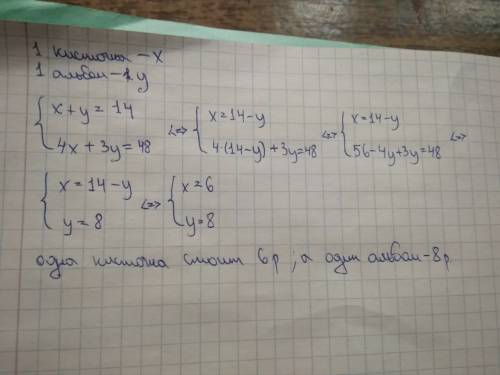 1 кисточка – x
1 альбом – y
{ x + y = 14 <=> { x = 14 – y <=> { x = 14 – y <=>
{ 4x + 3y = 48 { 4·(14 – y) + 3y = 48 { 56 – 4y + 3y = 48
{ x = 14 – y <=> { x = 6
{ y = 8 { y = 8
одна кисточка стоит 6р, а один альбом – 8р.